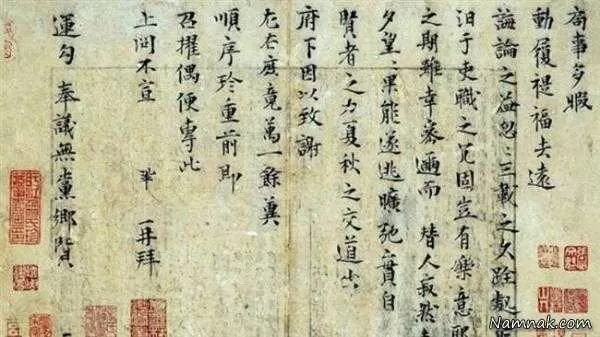 局事多暇
動履禔福去遠
誨論之益忽〻三載之久跧處
汩于吏職之冗固豈有樂意耶
之期雖幸密邇而替人寂然
夕望〻果能遂逃曠弛實自
賢者之力夏秋之交道出
府下因以致謝
左右庶竟萬一餘冀
順序珍重前即
召擢偶便專此
上問不宣 鞏再拜
運勾奉議無黨鄉賢
Namnak.com